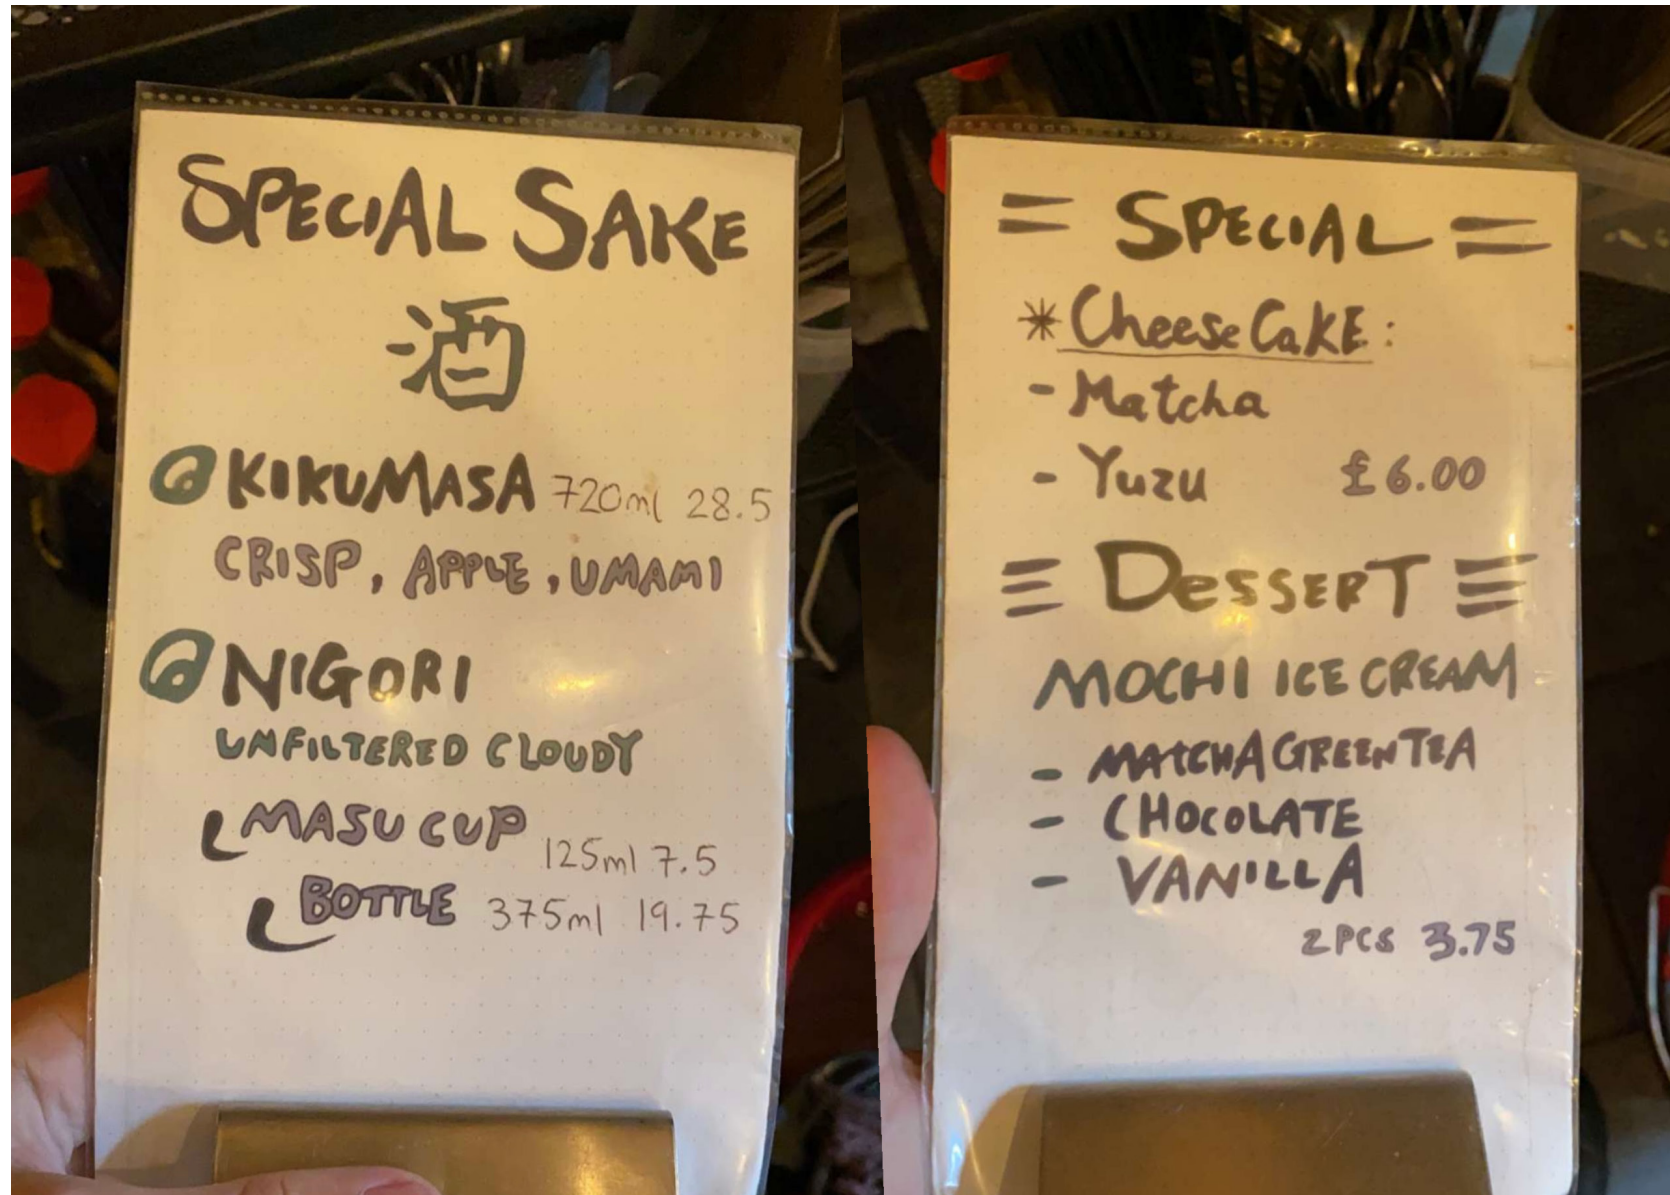 SPECIAL SAKE
酒
KIKUMASA 720ml 28.5
CRISP, APPLE, UMAMI
NIGORI
UNFILTERED CLOUDY
MASU CUP 125ml 7.5
BOTTLE 375ml 19.75
= SPECIAL =
* CheeseCaKE:
- Matcha
- Yuzu £6.00
≡ DeSSERT ≡
MOCHI ICE CREAM
- MATCHA GREEN TEA
- CHOCOLATE
- VANILLA
2PCS 3.75